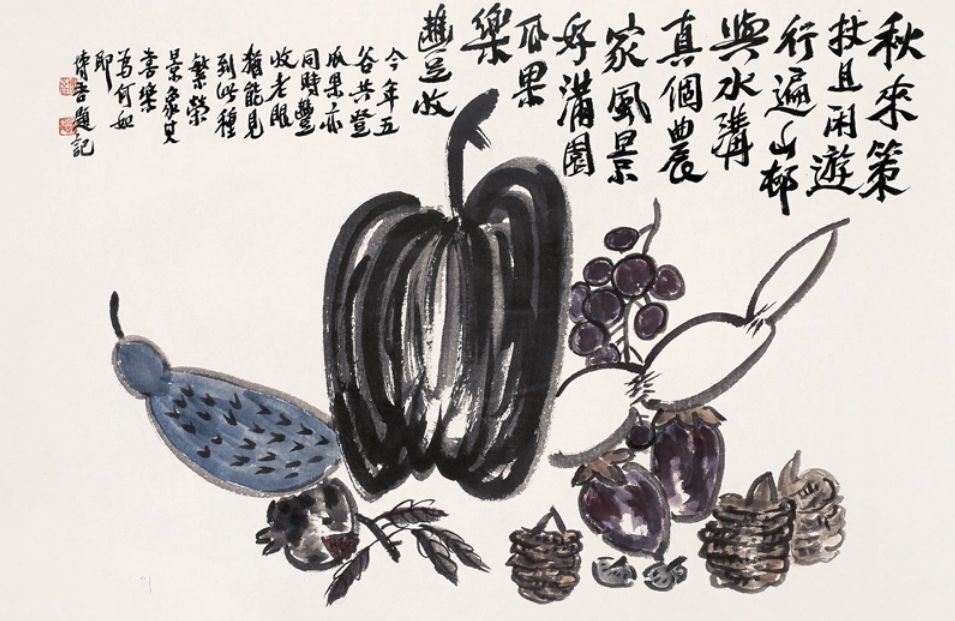 秋來策
杖且闲遊
行遍山邨
與水溝
真個農
家風景
好滿園
瓜果
樂
豐收
今年五
谷共登
瓜果亦
同時豐
收老眼
猶能見
到此種
繁榮
景象其
喜樂
為何如
耶
吾題記